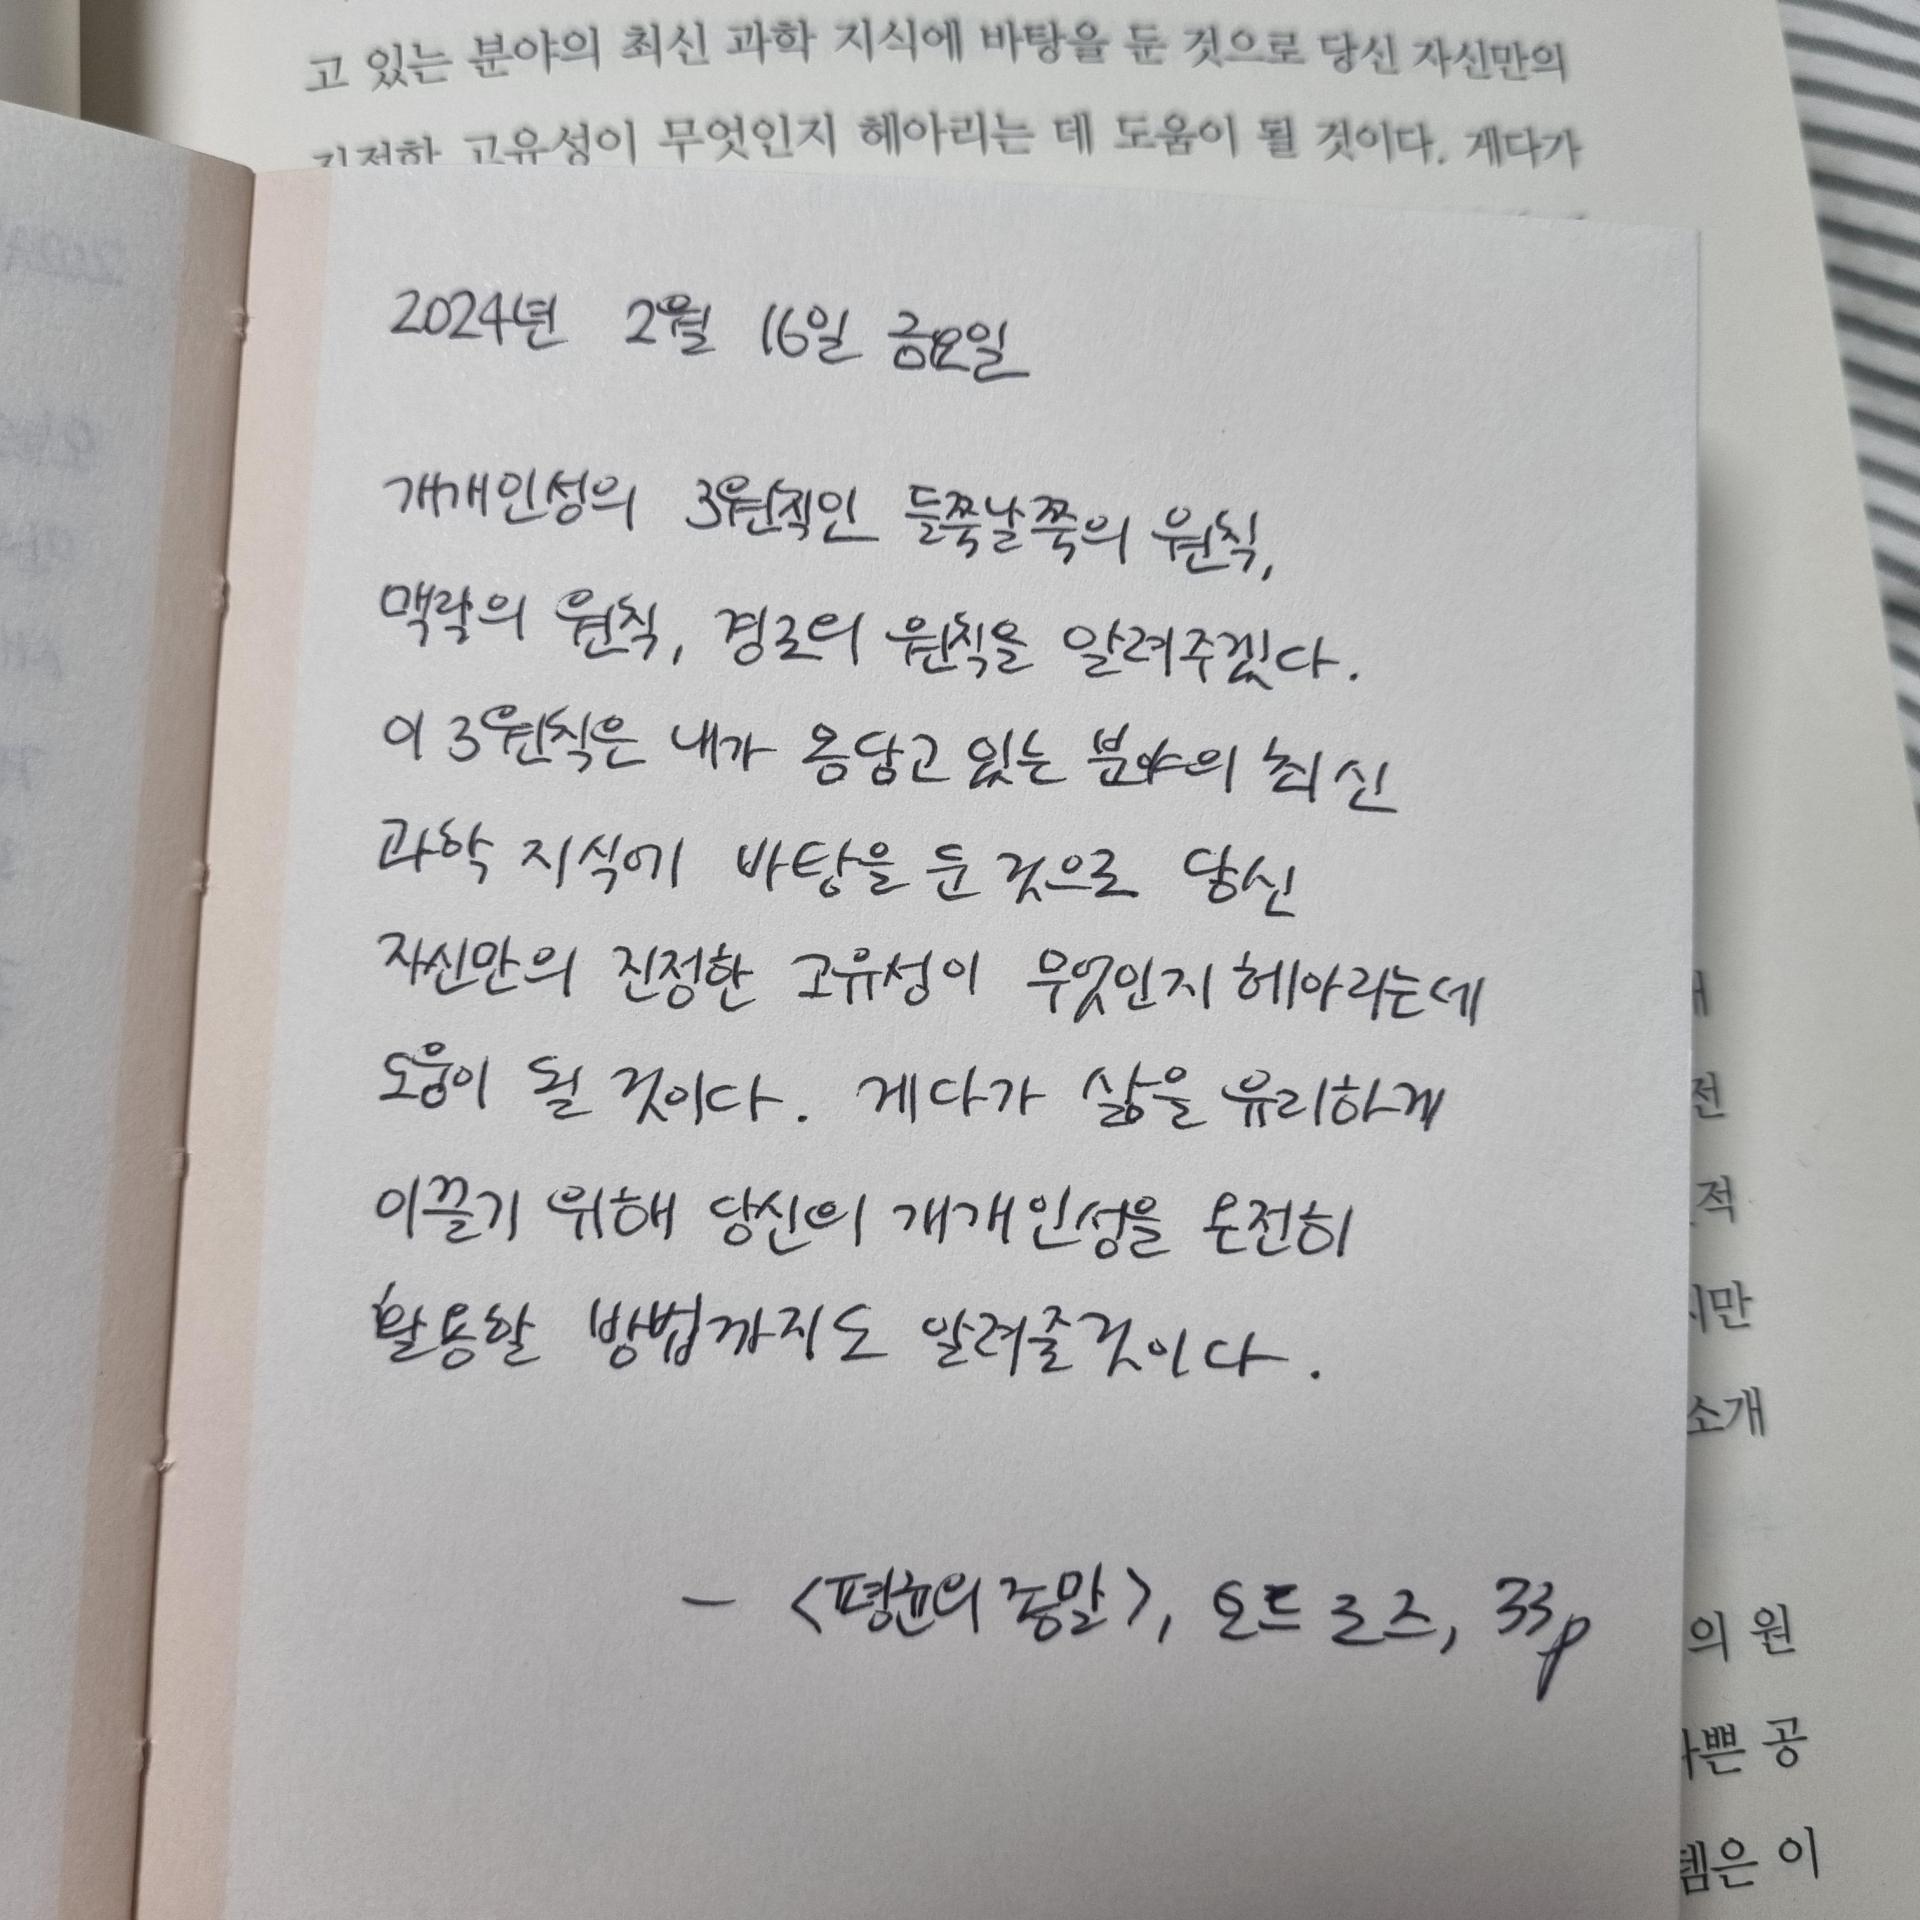 고 있는 분야의 최신 과학 지식에 바탕을 둔 것으로 당신 자신만의
진정한 고유성이 무엇인지 헤아리는 데 도움이 될 것이다. 게다가
2024년 2월 16일 금요일
개개인성의 3원칙인 들쭉날쭉의 원칙,
맥락의 원칙, 경로의 원칙을 알려주겠다.
이 3원칙은 내가 몽담고 있는 분야의 최신
과학 지식에 바탕을 둔 것으로 당신
자신만의 진정한 고유성이 무엇인지 헤아리는데
도움이 될 것이다. 게다가 삶을 유리하게
이끌기 위해 당신의 개개인성을 온전히
활용할 방법까지도 알려줄것이다.
- <평균의 종말>, 토드 로즈, 33p
전
적
지만
소개
의 원
쁜 공
템은 이